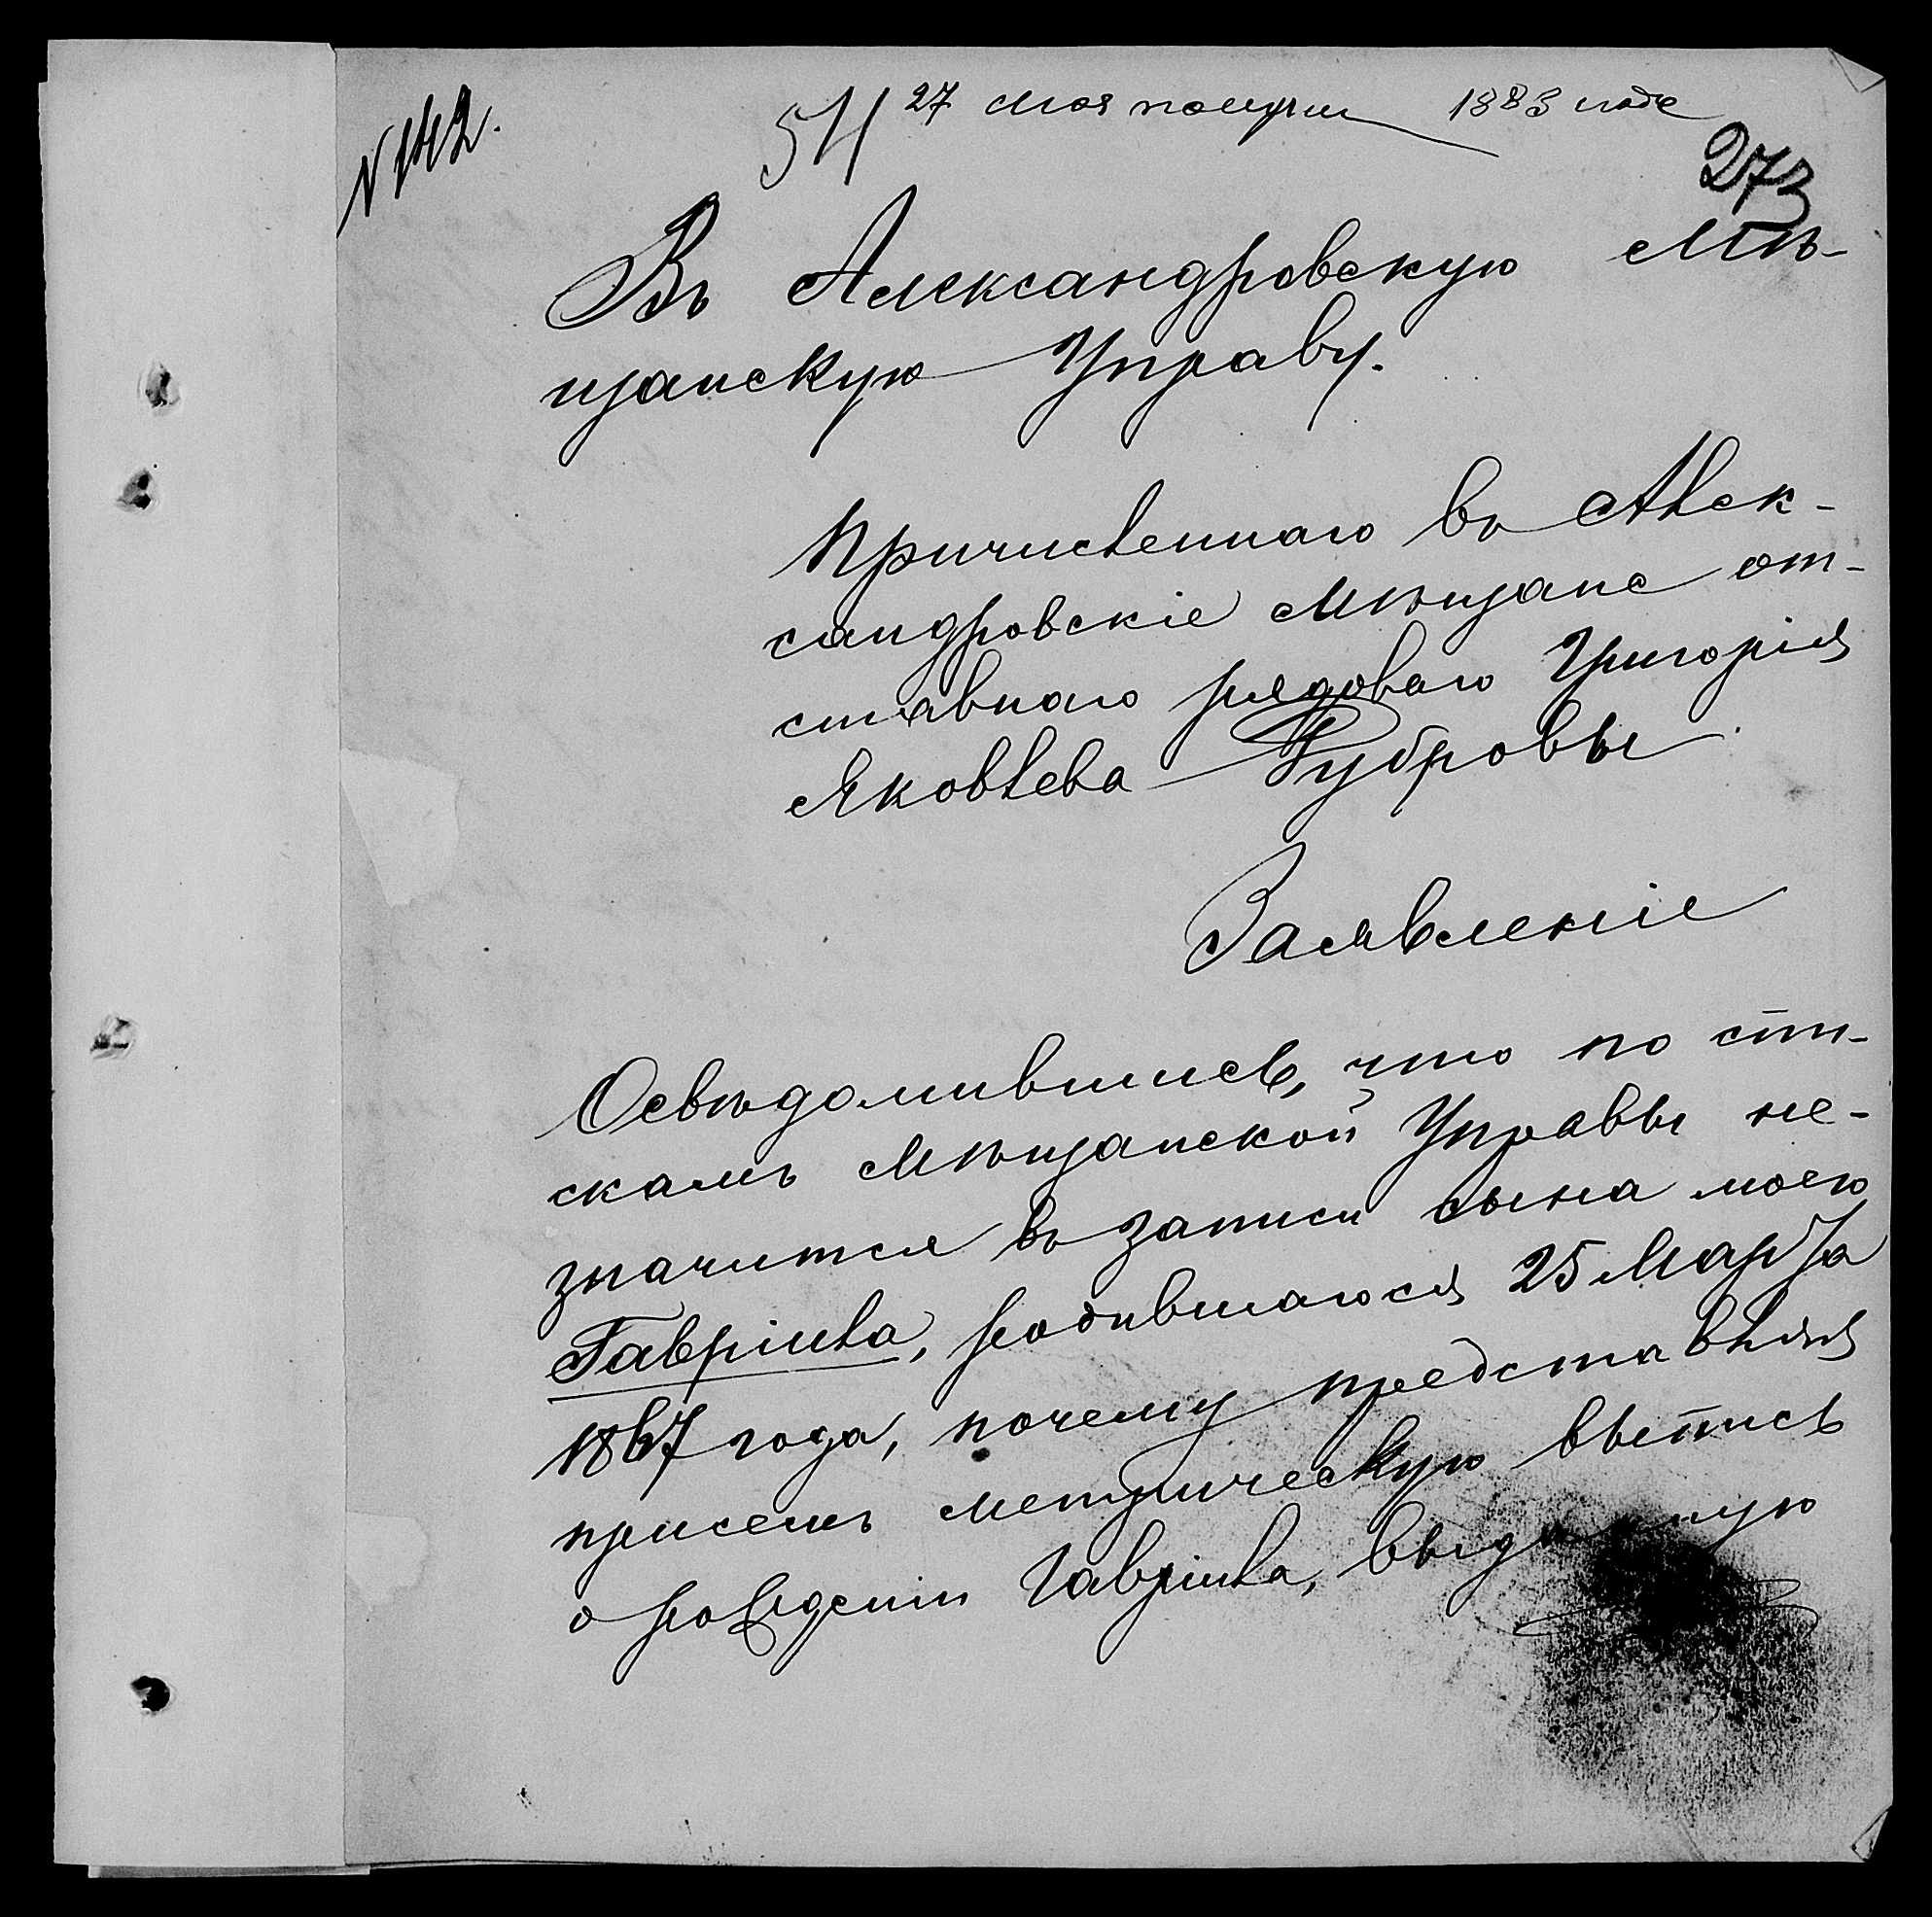 N 142.
54 27 мая получ 1883 года
273
Въ Александровскую Мѣ-
щанскую Управу.
Причисленнаго въ Алек-
сандровскіе мѣщане от-
ставнаго рядоваго Григорія
Яковлева
Заявленіе
Освѣдомившись, что по спи-
скамъ Мѣщанской Управы не-
значится въ записи сына моего
Гавріила, родившагося 25 Марта
1867 года, почему представляя
присемъ метрическую выпись
о рожденіи Гавріила, выданную